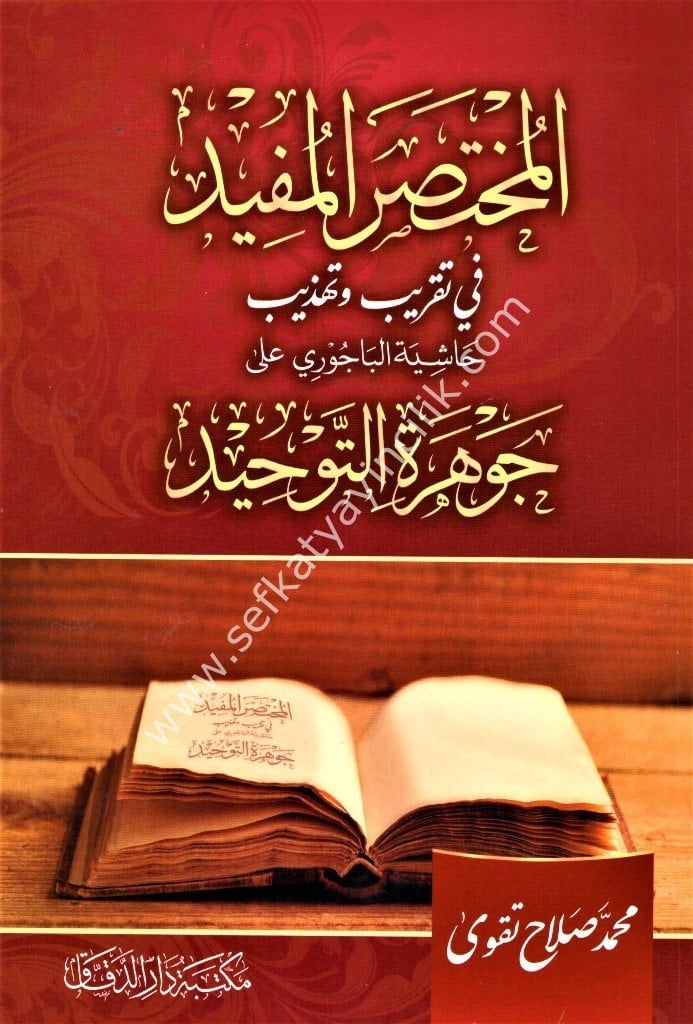 المُختصَر المُفِيد
في تقريب وتهذيب
حَاشِيَة البَاجُوْرِي عَلىٰ
جَوْهَرَةِ التَّوْحِيد
www.sefkatyayincilik.com
المختصر المفيد
في تقريب وتهذيب
حاشية الباجوري على
جوهرة التوحيد
محمّد صَلاح تقوىٰ
مكتبة دار الدقاق